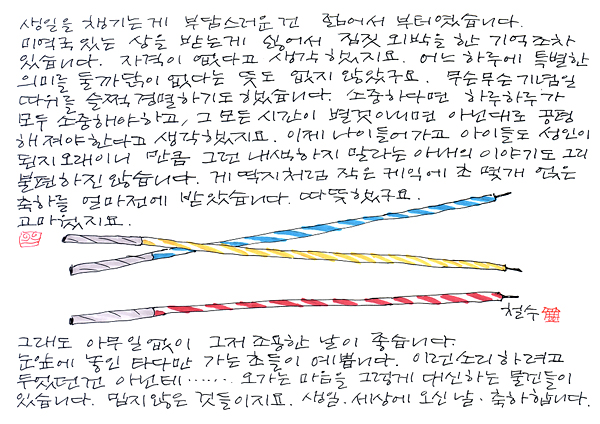 생일을 챙기는게 부담스러운건 젊어서 부터였습니다.
미역국 있는 상을 받는게 싫어서 짐짓 외박을 한 기억조차
있습니다. 자격이 없다고 생각했지요. 어느 하루에 특별한
의미를 둘까닭이 없다는 뜻도 없지 않았구요. 무슨무슨 기념일
따위를 슬쩍 경멸하기도 했습니다. 소중하다면 하루하루가
모두 소중해야하고, 그 모든 시간이 별것아니라면 아닌대로 공평
해져야한다고 생각했지요. 이제 나이들어가고 아이들도 성인이
된지 오래이니 만큼 그런 내색하지 말라는 아내의 이야기도 그리
불편하진 않습니다. 게딱지처럼 작은 케익에 초 몇개 얹은
축하를 얼마전에 받았습니다. 따뜻했구요.
고마웠지요.
철수
그래도 아무일없이 그저 조용한 날이 좋습니다.
눈앞에 놓인 타다만 가는 초들이 예쁩니다. 이런소리하려고
두었던건 아닌데...... 오가는 마음을 그렇게 대신하는 물건들이
있습니다. 밉지않은 것들이지요. 생일. 세상에 오신 날. 축하합니다.